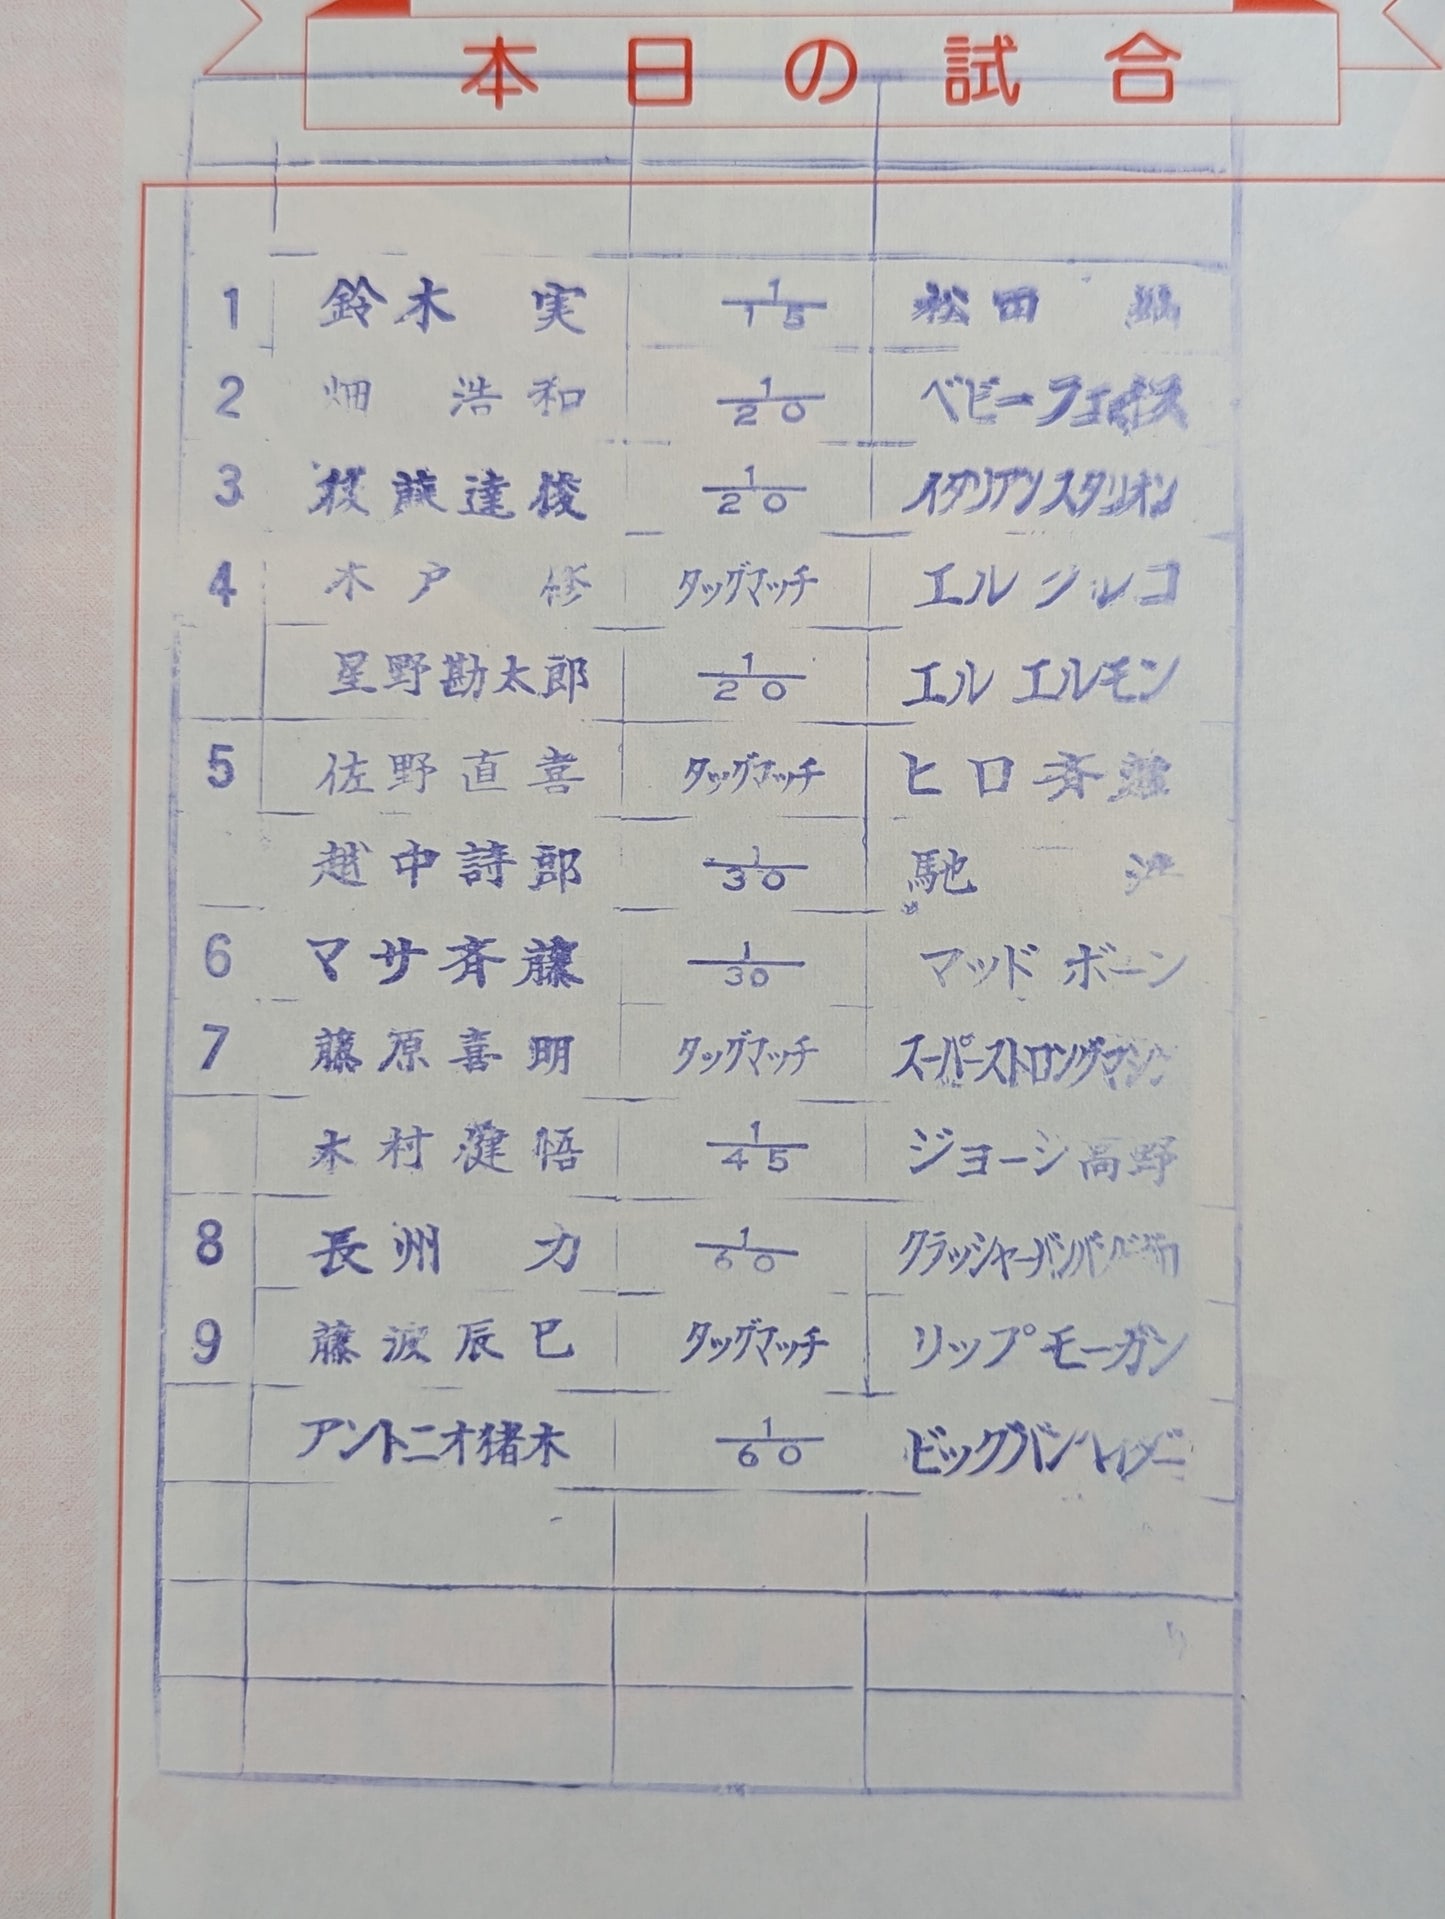 本日の試合
1 鈴木 実 1/15 松田
2 畑 浩和 1/20 ベビーフェイス
3 後藤達俊 1/20 イタリアンスタリオン
4 木戸 修 タッグマッチ エル
星野勘太郎 1/20 エル エルモン
5 佐野直喜 タッグマッチ ヒロ斉藤
越中詩郎 1/30 馳 浩
6 マサ斉藤 1/30 マッド ボーン
7 藤原喜明 タッグマッチ スーパーストロングマシン
木村健悟 1/45 ジョージ高野
8 長州 力 1/60 クラッシャーバンバンビガロ
9 藤波辰巳 タッグマッチ リップモーガン
アントニオ猪木 1/60 ビッグバンベイダー